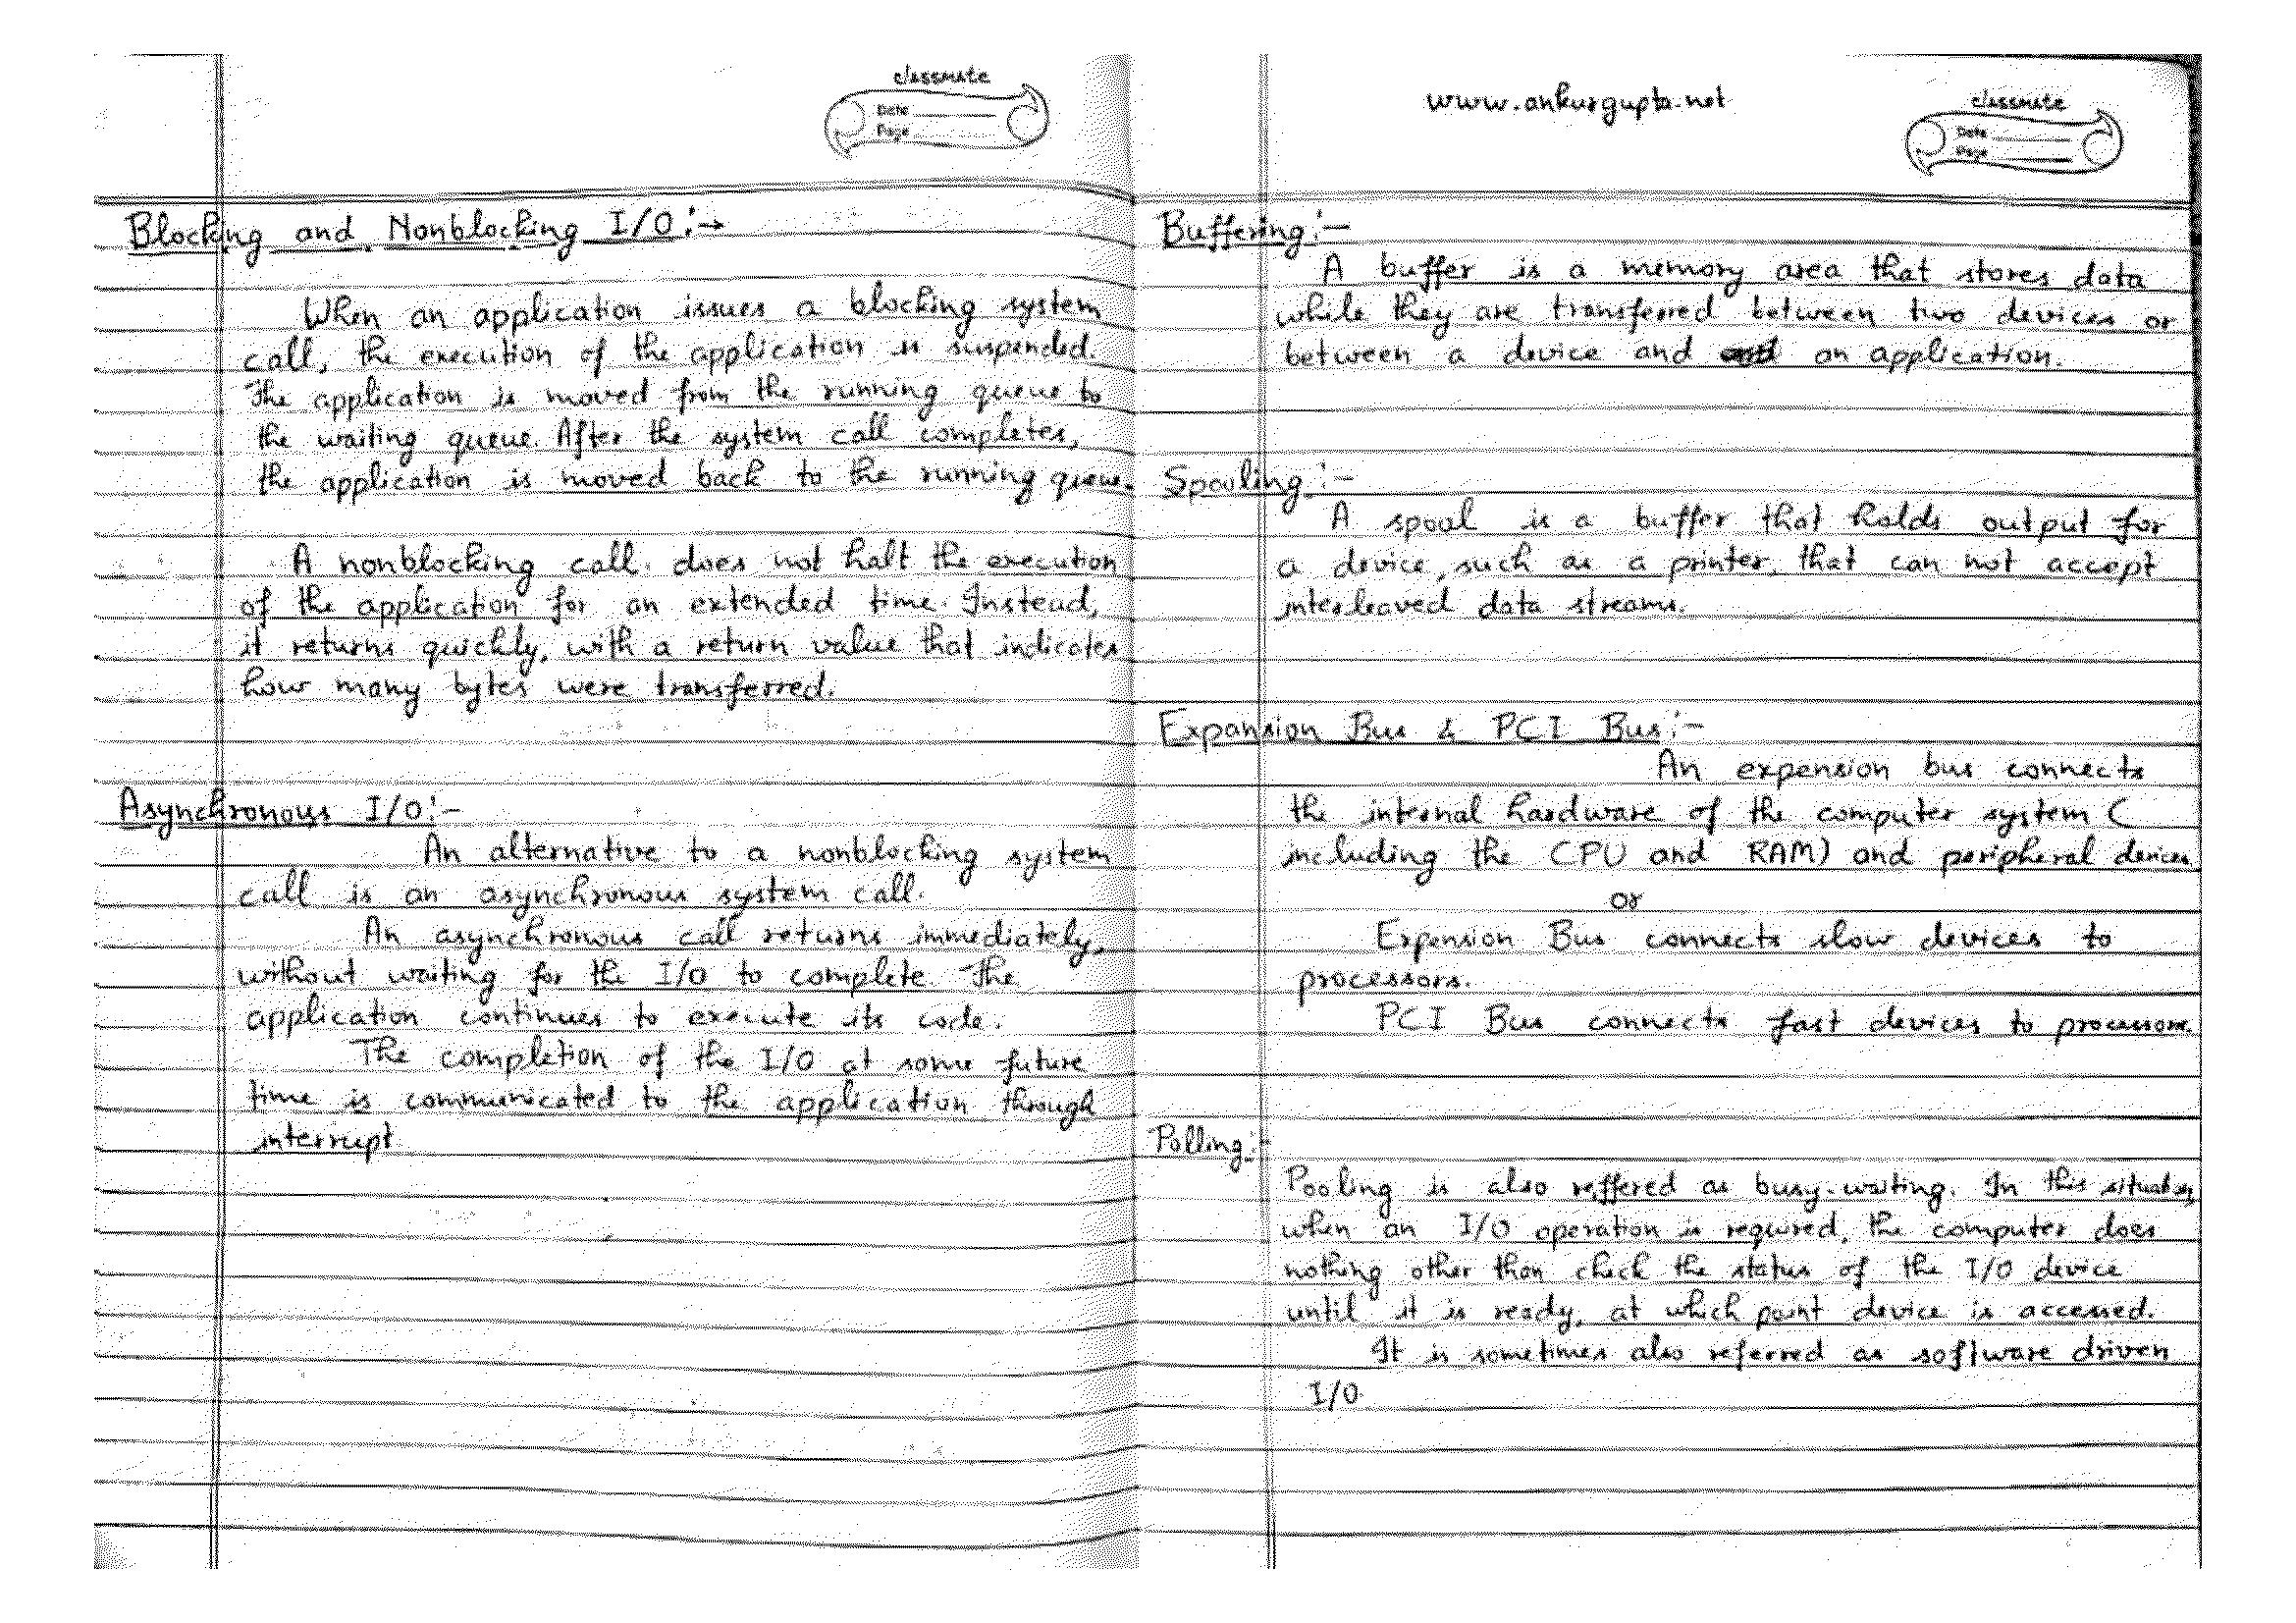 classmate
Date
Page
Blocking and Nonblocking I/O:→
When an application issues a blocking system
call, the execution of the application is suspended.
The application is moved from the running queue to
the waiting queue. After the system call completes,
the application is moved back to the running queue.
A nonblocking call does not halt the execution
of the application for an extended time. Instead,
it returns quickly, with a return value that indicates
how many bytes were transferred.
Asynchronous I/O:-
An alternative to a nonblocking system
call is an asynchronous system call.
An asynchronous call returns immediately,
without waiting for the I/O to complete. The
application continues to execute its code.
The completion of the I/O at some future
time is communicated to the application through
interrupt.
www.ankurgupta.net
classmate
Date
Page
Buffering:-
A buffer is a memory area that stores data
while they are transferred between two devices or
between a device and an application.
Spooling:-
A spool is a buffer that holds output for
a device, such as a printer, that can not accept
interleaved data streams.
Expansion Bus & PCI Bus:-
An expension bus connects
the internal hardware of the computer system (
including the CPU and RAM) and peripheral devices
or
Expension Bus connects slow devices to
processors.
PCI Bus connects fast devices to processors.
Polling:-
Pooling is also reffered as busy-waiting. In this situation,
when an I/O operation is required, the computer does
nothing other than check the status of the I/O device
until it is ready, at which point device is accessed.
It is sometimes also referred as software driven
I/O.